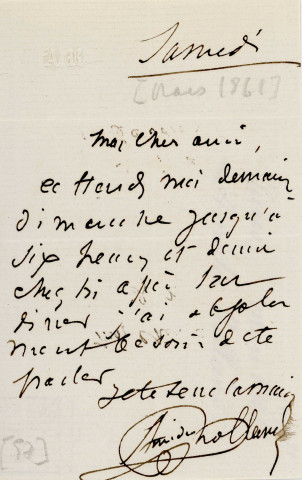 Samedi
[Mars 1861]
Mon cher ami,
attends moi demain
dimanche jusqu'à
six heures et demie
chez toi après ton
diner j'ai absolu
ment besoin de te
parler
je te serre la main
Amédée Rolland
[57]